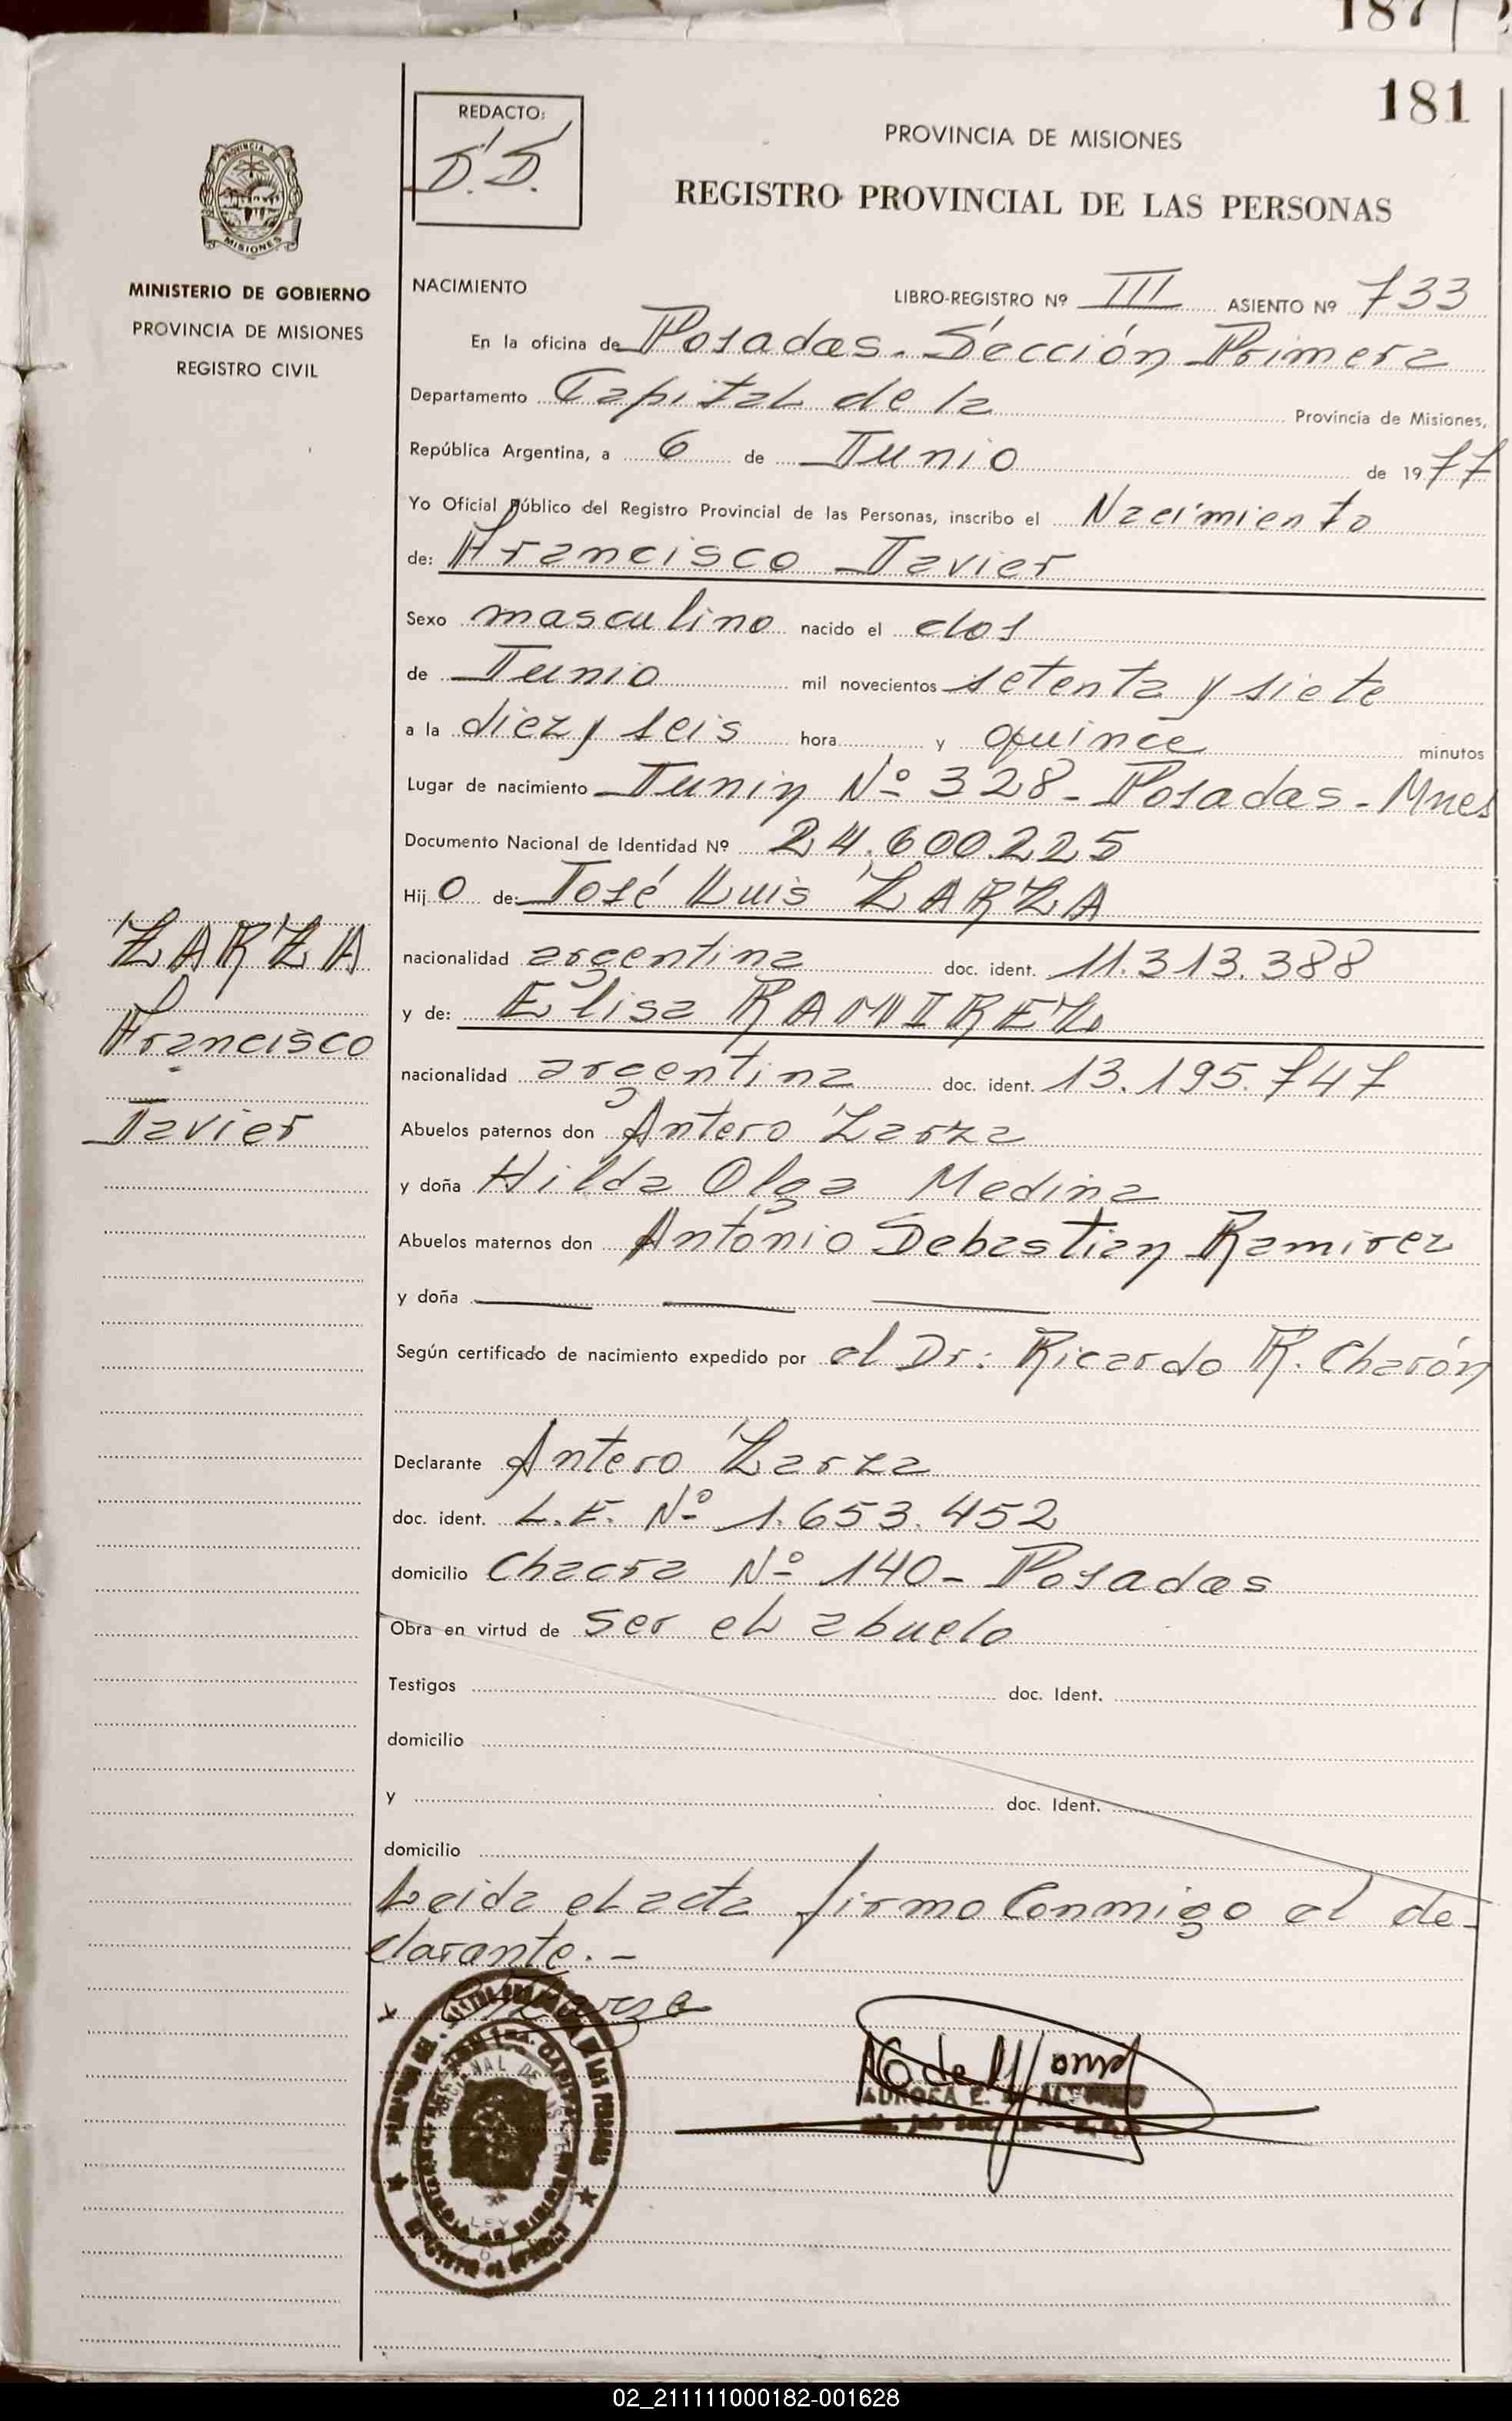 187
181
REDACTO:
D.D.
PROVINCIA DE MISIONES
REGISTRO PROVINCIAL DE LAS PERSONAS
PROVINCIA DE
MISIONES
MINISTERIO DE GOBIERNO
PROVINCIA DE MISIONES
REGISTRO CIVIL
NACIMIENTO
LIBRO-REGISTRO Nº III ASIENTO Nº 733
En la oficina de Posadas - Sección Primera
Departamento Capital de la Provincia de Misiones,
República Argentina, a 6 de Junio de 1977
Yo Oficial Público del Registro Provincial de las Personas, inscribo el Nacimiento
de: Francisco Javier
Sexo masculino nacido el dos
de Junio mil novecientos setenta y siete
a la diez y seis hora y quince minutos
Lugar de nacimiento Junin Nº 328 - Posadas - Mnes
Documento Nacional de Identidad Nº 24.600.225
Hijo de: José Luis ZARZA
nacionalidad argentina doc. ident. 11.313.388
y de: Elisa RAMIREZ
nacionalidad argentina doc. ident. 13.195.747
Abuelos paternos don Antero Zarza
y doña Hilda Olga Medina
Abuelos maternos don Antonio Sebastian Ramirez
y doña
Según certificado de nacimiento expedido por el Dr: Ricardo R. Charón
Declarante Antero Zarza
doc. ident. L.E. Nº 1.653.452
domicilio Chacra Nº 140 - Posadas
Obra en virtud de ser el abuelo
Testigos doc. Ident.
domicilio
y doc. Ident.
domicilio
Leida el acta firmo Conmigo el de-
clarante. -
ZARZA
Francisco
Javier
x Zarza
AURORA E.
02_211111000182-001628